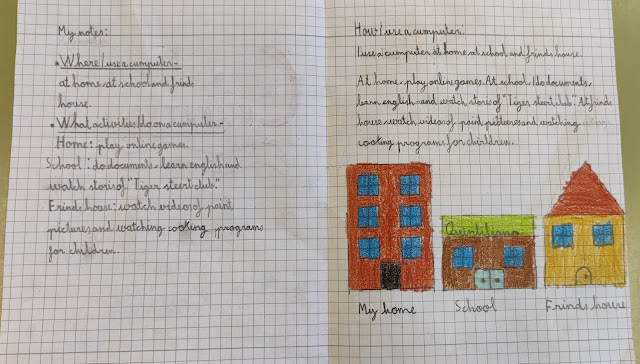 My notes:
• Where I use a cumputer-
at home, at school and frinds
house.
• What activities I do on a cumputer-
Home: play online games.
School: do documents, learn english and
watch storis of "Tiger steert club."
Frinds house: watch videos of paint
pictures and watching cooking programs
for children.
How I use a cumputer:
I use a cumputer at home, at school and frinds house.
At home, play online games. At school I do documents,
learn english and watch storis of "Tiger steert club." At frinds
house watch videos of paint pictures and watching
cooking programs for children.
Quintiliano
My home
School
Frinds house